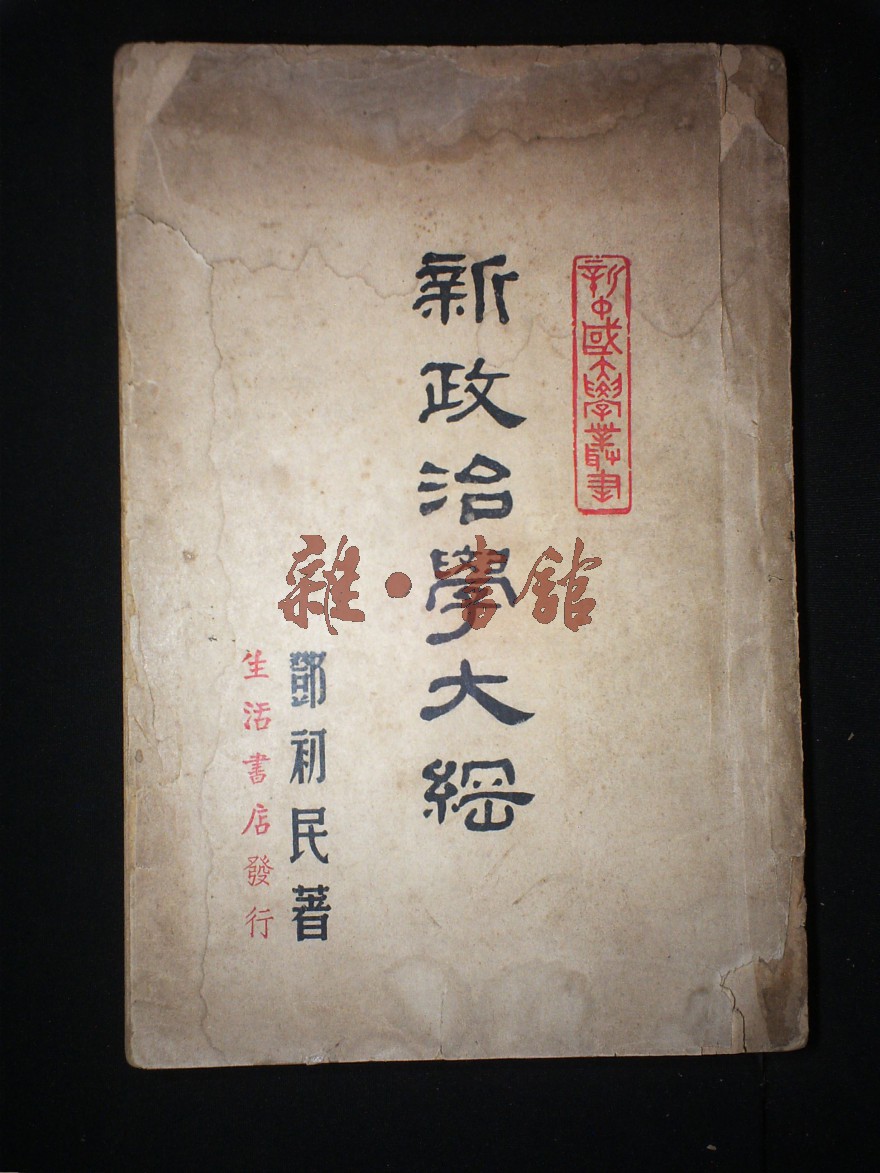 新中國大學叢書
新政治學大綱
鄧初民著
生活書店發行
雜·書館